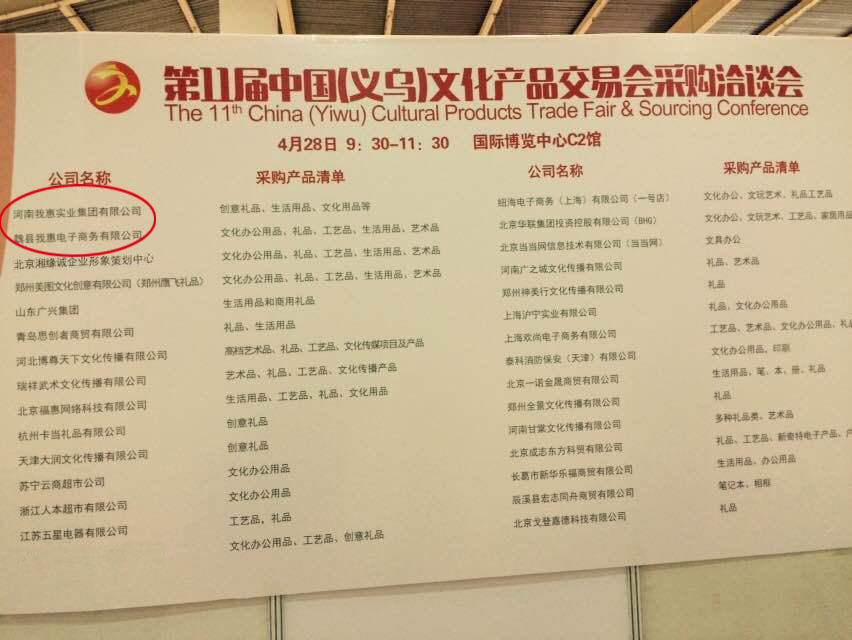 第11届中国(义乌)文化产品交易会采购洽谈会
The 11th China (Yiwu) Cultural Products Trade Fair & Sourcing Conference
4月28日 9：30-11：30 国际博览中心C2馆
公司名称
河南我惠实业集团有限公司
魏县我惠电子商务有限公司
北京湘缘诚企业形象策划中心
郑州美图文化创意有限公司（郑州鹰飞礼品）
山东广兴集团
青岛思创者商贸有限公司
河北博尊天下文化传播有限公司
瑞祥武术文化传播有限公司
北京福惠网络科技有限公司
杭州卡当礼品有限公司
天津大润文化传播有限公司
苏宁云商超市公司
浙江人本超市有限公司
江苏五星电器有限公司
采购产品清单
创意礼品、生活用品、文化用品等
文化办公用品、礼品、工艺品、生活用品、艺术品
文化办公用品、礼品、工艺品、生活用品、艺术品
文化办公用品、礼品、工艺品、生活用品、艺术品
生活用品和商用礼品
礼品、生活用品
高档艺术品、礼品、工艺品、文化传媒项目及产品
艺术品、礼品、工艺品、文化传播产品
生活用品、工艺品、礼品、文化用品
创意礼品
创意礼品
文化办公用品
文化办公用品
工艺品，礼品
文化办公用品、工艺品、创意礼品
公司名称
纽海电子商务（上海）有限公司（一号店）
北京华联集团投资控股有限公司（BHG）
北京当当网信息技术有限公司（当当网）
河南广之城文化传播有限公司
郑州神美行文化传播有限公司
上海沪宁实业有限公司
上海欢尚电子商务有限公司
泰科消防保安（天津）有限公司
北京一诺金晟商贸有限公司
郑州全景文化传播有限公司
河南甘棠文化传播有限公司
北京成志东方科贸有限公司
长葛市新华乐福商贸有限公司
辰溪县宏志同舟商贸有限公司
北京戈登嘉德科技有限公司
采购产品清单
文化办公、文玩艺术、礼品工艺品
文化办公、文玩艺术、工艺品、家居用品
文具办公
礼品、艺术品
礼品
礼品、文化办公用品
工艺品、艺术品、文化办公用品、礼
文化办公用品，印刷
生活用品、笔、本、册、礼品
礼品
多种礼品类、艺术品
礼品、工艺品、新奇特电子产品、户
生活用品、办公用品
笔记本、相框
礼品